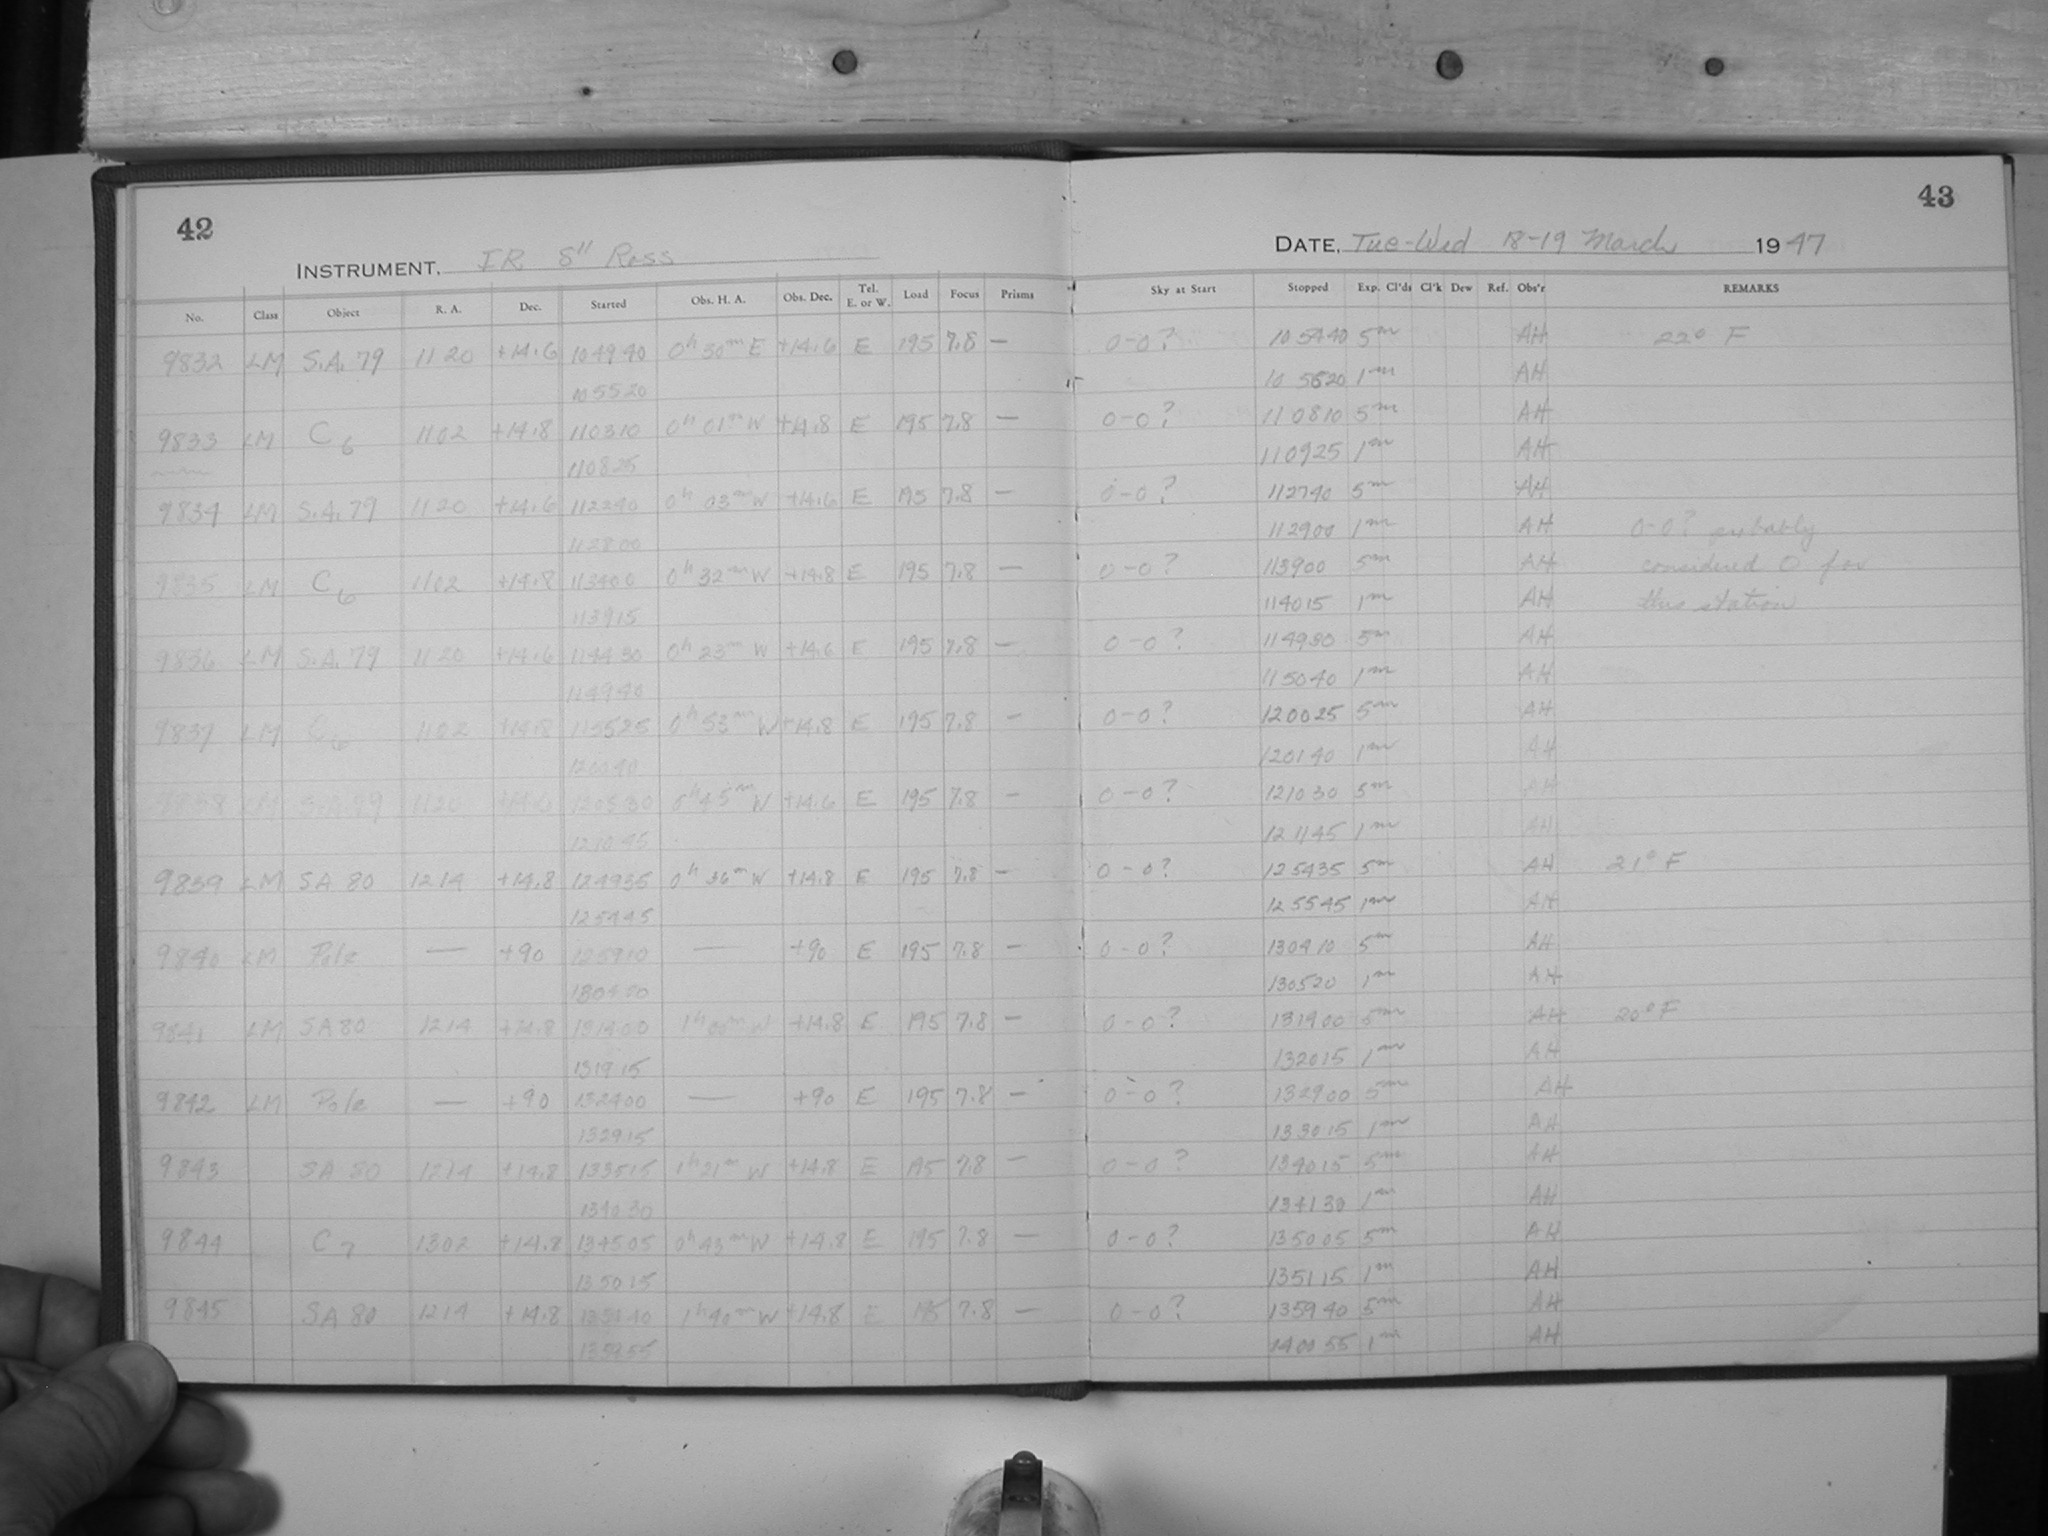 42
43
INSTRUMENT. IR 8" Ross
DATE. Tue-Wed 18-19 March 1947
No. Class Object R. A. Dec. Started Obs. H. A. Obs. Dec. Tel. E. or W. Load Focus Prisms Sky at Start Stopped Exp. Cl'ds Cl'k Dew Ref. Obs'r REMARKS
9832 LM S.A. 79 1120 +14.6 104940 0h 30m E +14.6 E 195 7.8 — 0-0? 105440 5m AH 22° F
105520 105620 1m AH
9833 LM C6 1102 +14.8 110310 0h 01m W +14.8 E 195 7.8 — 0-0? 110810 5m AH
110825 110925 1m AH
9834 LM S.A. 79 1120 +14.6 112240 0h 03m W +14.6 E 195 7.8 — 0-0? 112740 5m AH
112800 112900 1m AH 0-0? probably
9835 LM C6 1102 +14.8 113400 0h 32m W +14.8 E 195 7.8 — 0-0? 113900 5m AH considered 0 for
113915 114015 1m AH this station
9836 LM S.A. 79 1120 +14.6 114430 0h 23m W +14.6 E 195 7.8 — 0-0? 114930 5m AH
114940 115040 1m AH
9837 LM C6 1102 +14.8 115525 0h 53m W +14.8 E 195 7.8 — 0-0? 120025 5m AH
120040 120140 1m AH
9838 LM S.A. 79 1120 +14.6 120530 0h 45m W +14.6 E 195 7.8 — 0-0? 121030 5m AH
121045 121145 1m AH
9839 LM SA 80 1214 +14.8 124935 0h 36m W +14.8 E 195 7.8 — 0-0? 125435 5m AH 21° F
125445 125545 1m AH
9840 LM Pole — +90 125910 — +90 E 195 7.8 — 0-0? 130410 5m AH
130420 130520 1m AH
9841 LM SA 80 1214 +14.8 131400 1h 00m W +14.8 E 195 7.8 — 0-0? 131900 5m AH 20° F
131915 132015 1m AH
9842 LM Pole — +90 132400 — +90 E 195 7.8 — 0-0? 132900 5m AH
132915 133015 1m AH
9843 SA 80 1214 +14.8 133515 1h 21m W +14.8 E 195 7.8 — 0-0? 134015 5m AH
134030 134130 1m AH
9844 C7 1302 +14.8 134505 0h 43m W +14.8 E 195 7.8 — 0-0? 135005 5m AH
135015 135115 1m AH
9845 SA 80 1214 +14.8 135440 1h 40m W +14.8 E 195 7.8 — 0-0? 135940 5m AH
135955 140055 1m AH